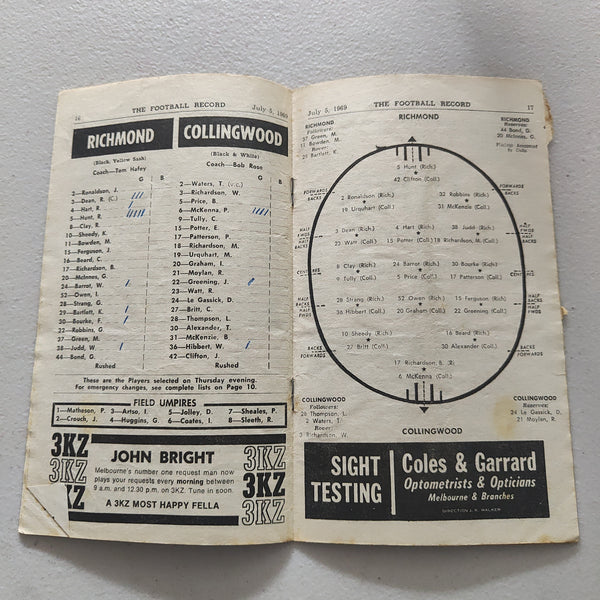 16 THE FOOTBALL RECORD July 5, 1969
RICHMOND
(Black, Yellow Sash)
Coach—Tom Hafey
G B
2—Ronaldson, J.
3—Dean, R. (C.)
4—Hart, R.
5—Hunt, R.
8—Clay, R.
10—Sheedy, K.
11—Bowden, M.
15—Ferguson, J.
16—Beard, C.
17—Richardson, B.
20—McInnes, G.
24—Barrot, W.
52—Owen, I.
28—Strang, G.
29—Bartlett, K.
30—Bourke, F.
32—Robbins, G.
37—Green, M.
38—Judd, W.
44—Bond, G.
Rushed
COLLINGWOOD
(Black & White)
Coach—Bob Rose
G B
2—Waters, T. (v.c.)
3—Richardson, W.
5—Price, B.
6—McKenna, P.
9—Tully, C.
15—Potter, E.
17—Patterson, P.
18—Richardson, M.
19—Urquhart, M.
20—Graham, I.
21—Moylan, R.
22—Greening, J.
23—Watt, R.
24—Le Gassick, D.
27—Britt, C.
28—Thompson, L.
30—Alexander, T.
31—McKenzie, B
36—Hibbert, W.
42—Clifton, J.
Rushed
These are the Players selected on Thursday evening.
For emergency changes, see complete lists on Page 10.
FIELD UMPIRES
1—Matheson, P. 3—Artso, I. 5—Jolley, D. 7—Sheales, P.
2—Crouch, J. 4—Huggins, G. 6—Coates, I. 8—Sleath, R.
3KZ
3KZ
KZ
JOHN BRIGHT
Melbourne's number one request man now
plays your requests every morning between
9 a.m. and 12.30 p.m. on 3KZ. Tune in soon.
A 3KZ MOST HAPPY FELLA
3KZ
3KZ
3KZ
3KZ
July 5, 1969 THE FOOTBALL RECORD 17
RICHMOND
Followers:
37 Green, M.
11 Bowden, M.
Rover:
29 Bartlett, K.
RICHMOND
RICHMOND
Reserves:
44 Bond, G.
20 McInnes, G.
5 Hunt (Rich.)
42 Clifton (Coll.)
FORWARDS
BACKS
2 Ronaldson (Rich.)
19 Urquhart (Coll.)
32 Robbins (Rich.)
31 McKenzie (Coll.)
FORWARDS
BACKS
HALF
FWDS
HALF
BACKS
3 Dean (Rich.)
23 Watt (Coll.)
4 Hart (Rich.)
15 Potter (Coll.)
38 Judd (Rich.)
18 Richardson, M. (Coll.)
HALF
FWDS
HALF
BACKS
CENTRES
8 Clay (Rich.)
9 Tully (Coll.)
24 Barrot (Rich.)
5 Price (Coll.)
30 Bourke (Rich.)
17 Patterson (Coll.)
CENTRES
HALF
BACKS
HALF
FWDS
28 Strang (Rich.)
36 Hibbert (Coll.)
52 Owen (Rich.)
20 Graham (Coll.)
15 Ferguson (Rich.)
22 Greening (Coll.)
HALF
BACKS
HALF
FWDS
BACKS
FORWARDS
10 Sheedy (Rich.)
27 Britt (Coll.)
16 Beard (Rich.)
30 Alexander (Coll.)
BACKS
FORWARDS
17 Richardson, B. (R)
6 McKenna (Coll.)
COLLINGWOOD
Followers:
28 Thompson, L.
2 Waters, T.
Rover:
3 Richardson, W.
COLLINGWOOD
COLLINGWOOD
Reserves:
24 Le Gassick, D.
21 Moylan, R.
SIGHT
TESTING
Coles & Garrard
Optometrists & Opticians
Melbourne & Branches
DIRECTION J. K. WALKER